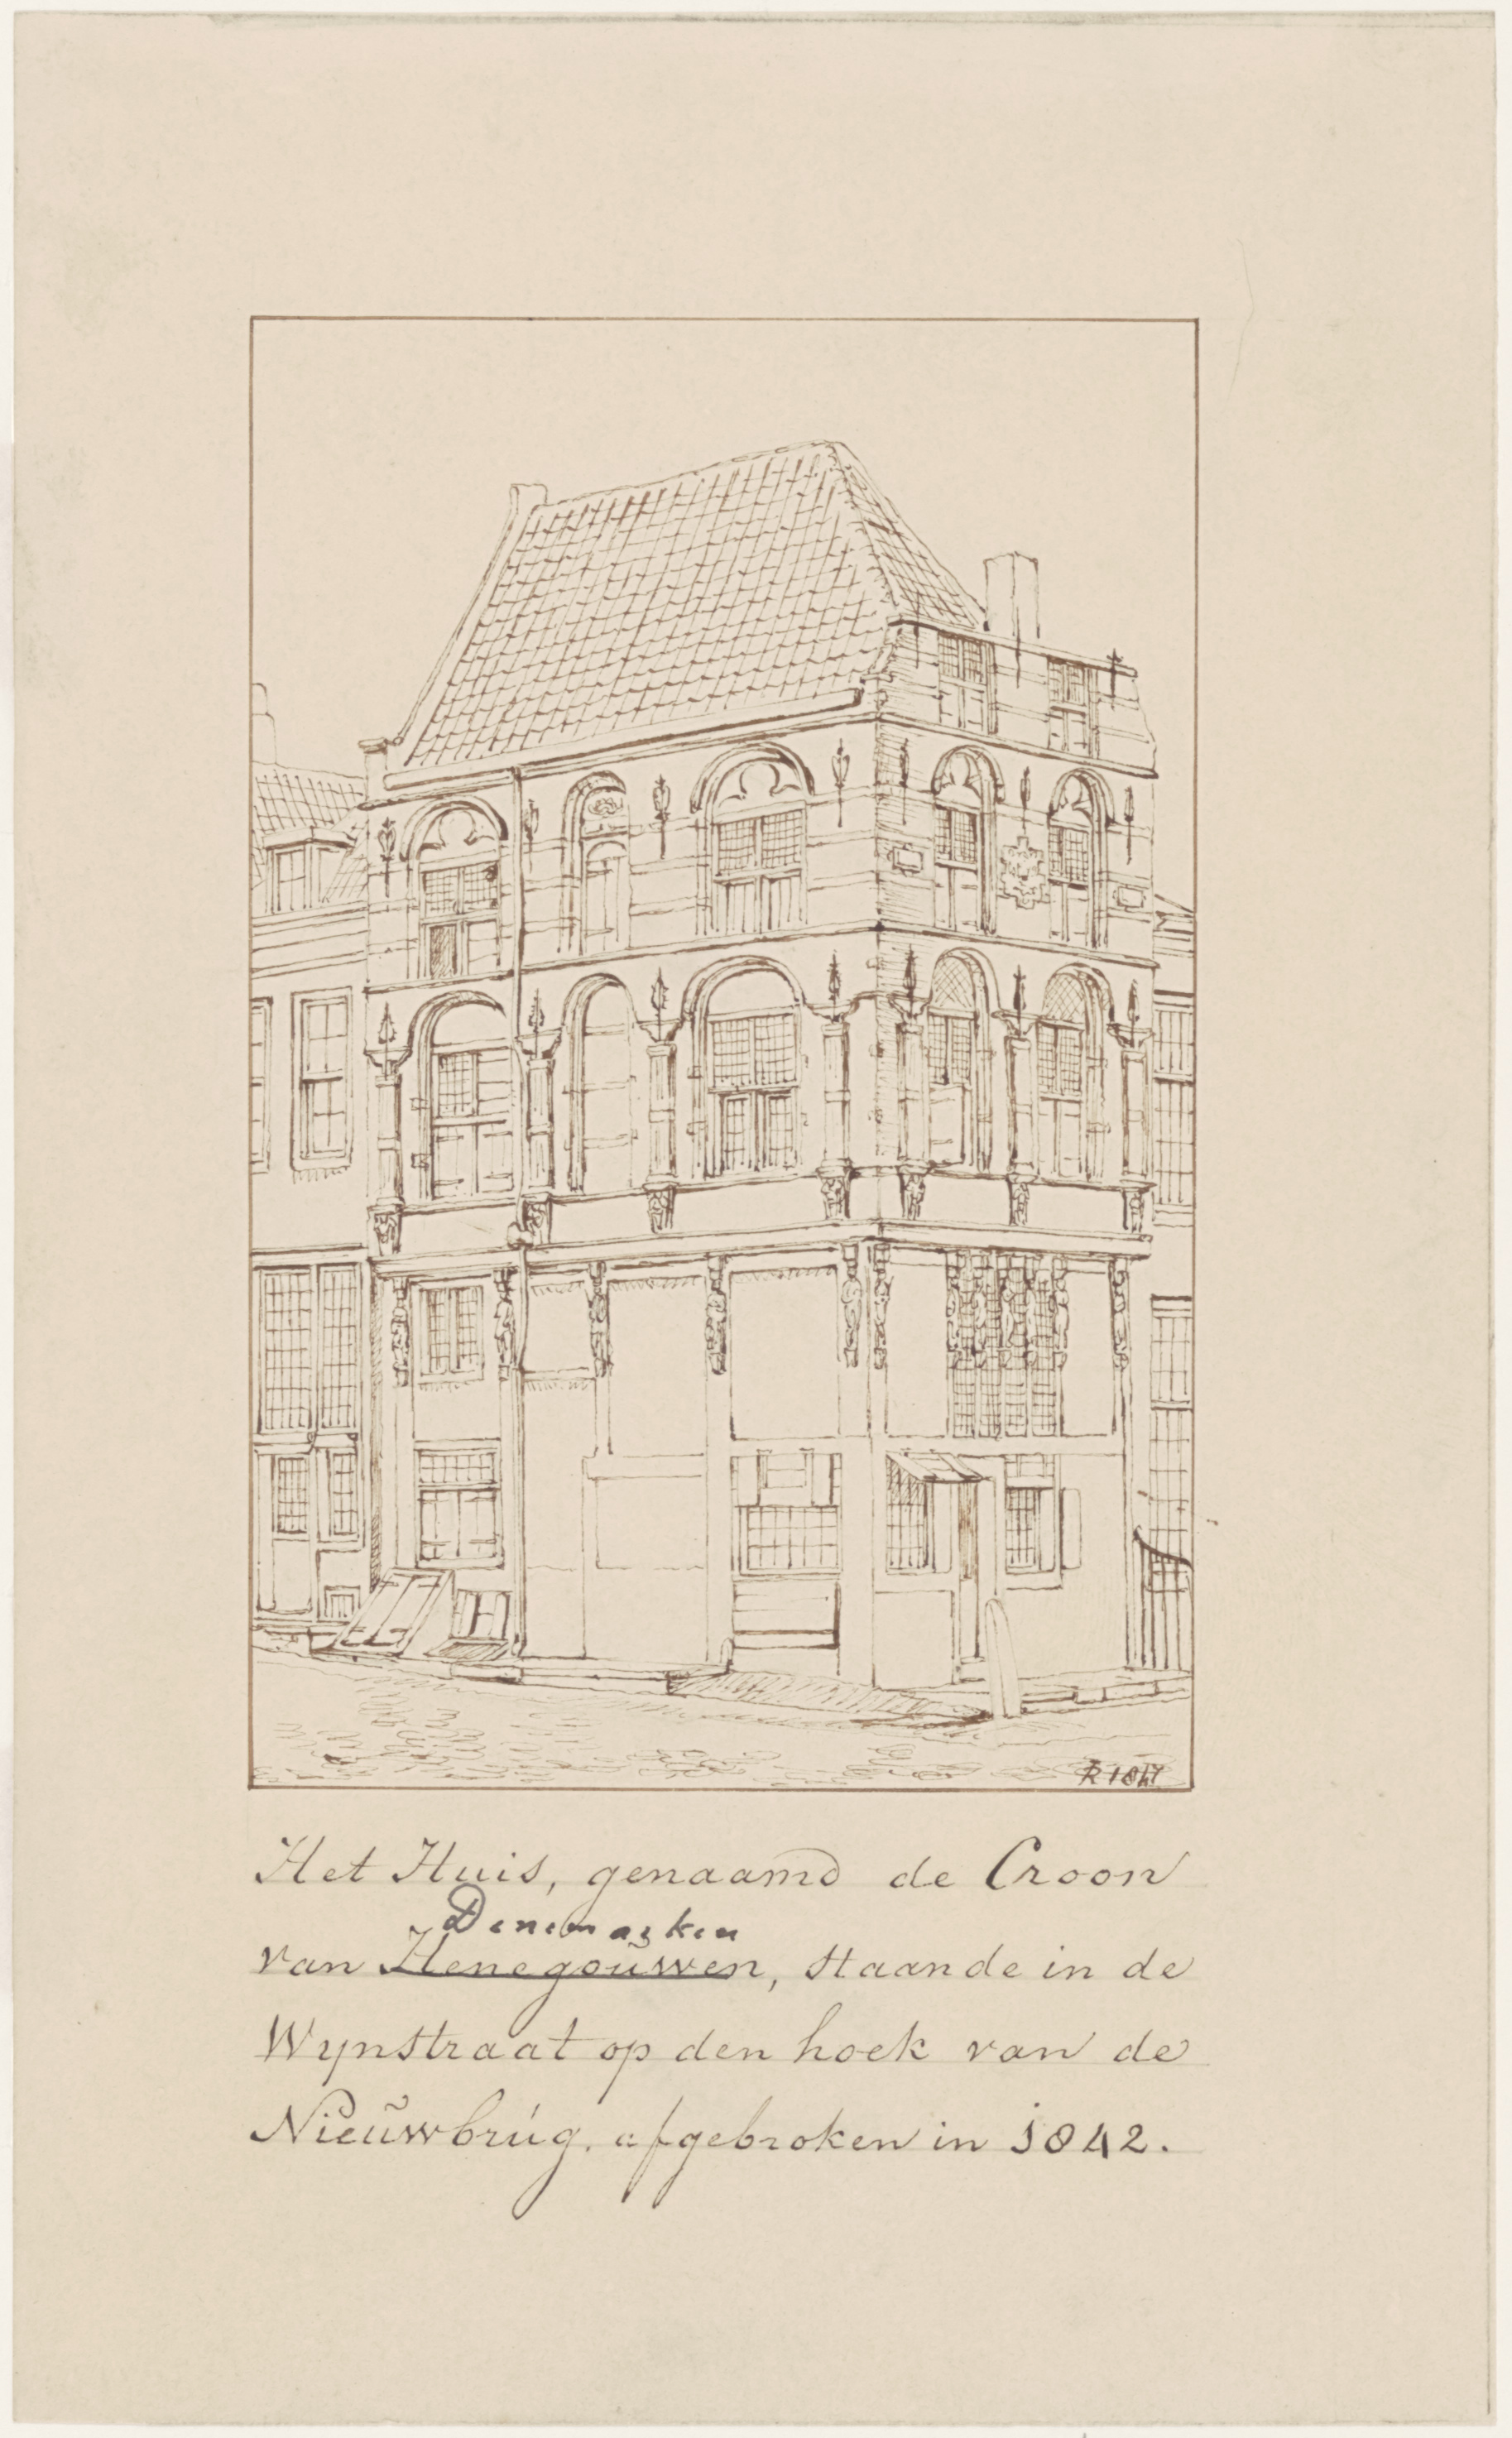 Het Huis, genaamd de Croon
Denemarken
van Henegouwen, staande in de
Wynstraat op den hoek van de
Nieuwbrug, afgebroken in 1842.